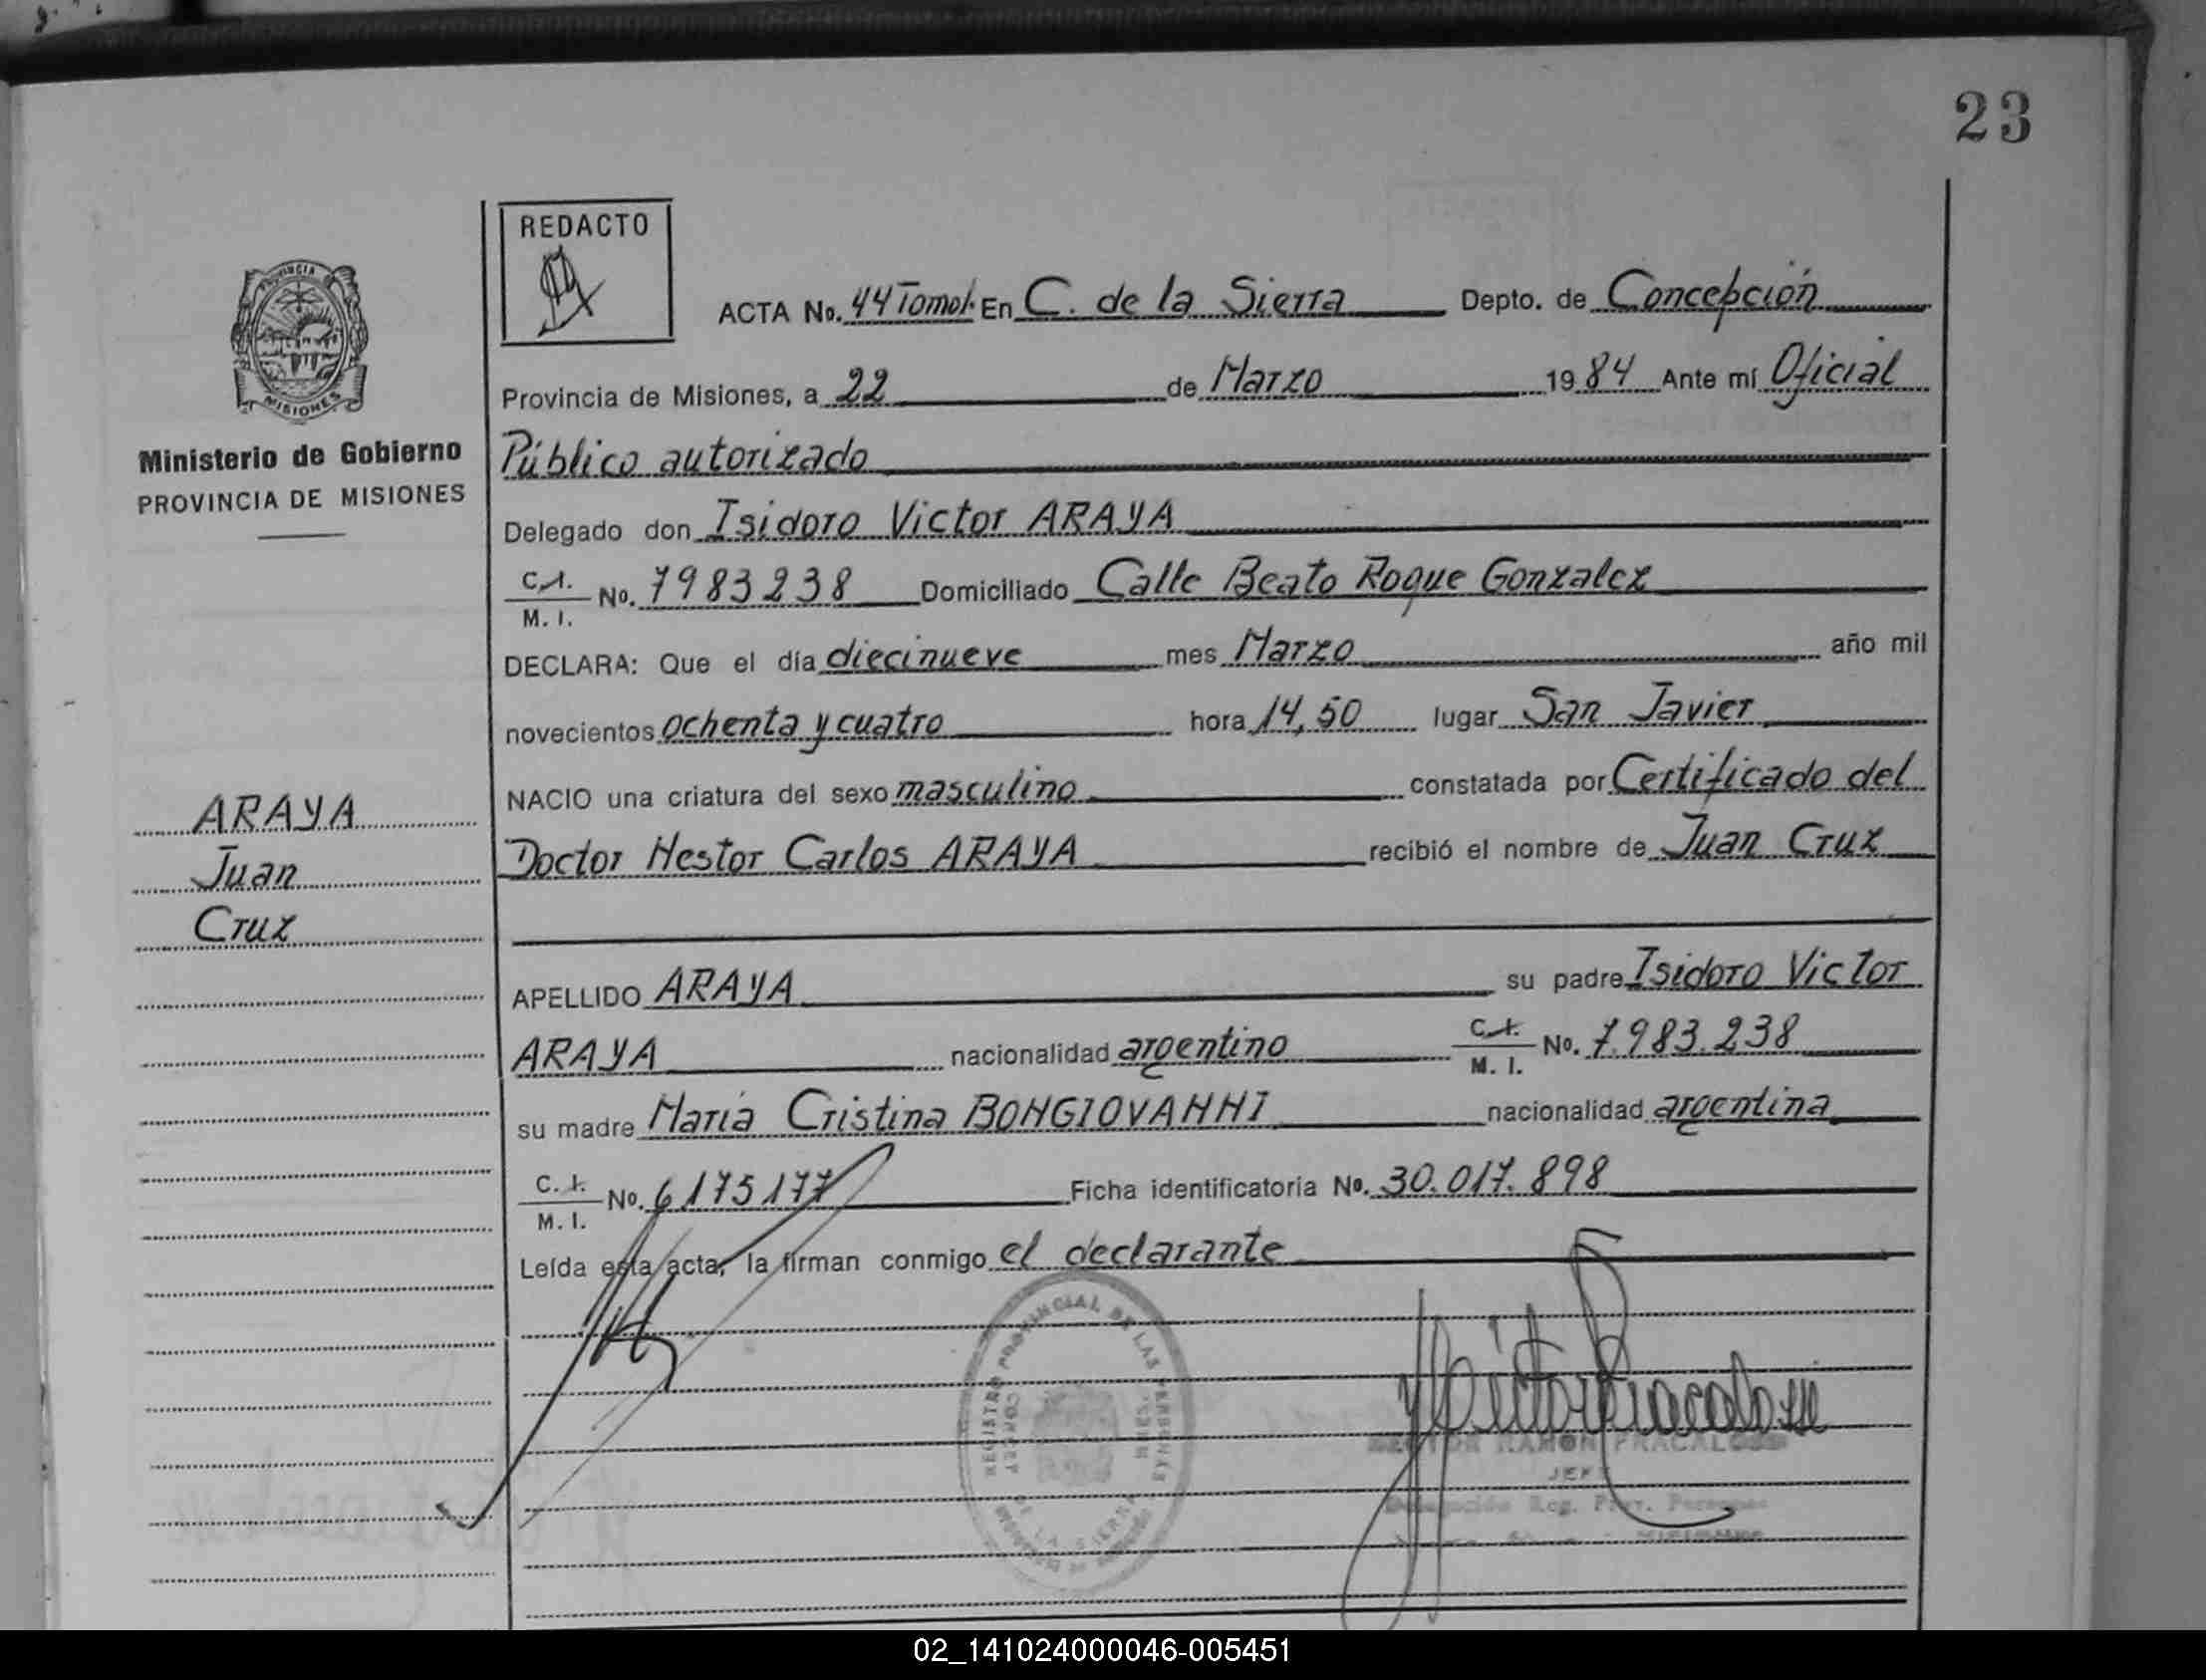 23
REDACTO
PROVINCIA DE
MISIONES
Ministerio de Gobierno
PROVINCIA DE MISIONES
ARAYA
Juan
Cruz
ACTA No. 44 Tomo I. En C. de la Sierra Depto. de Concepción
Provincia de Misiones, a 22 de Marzo 1984 Ante mí Oficial
Público autorizado
Delegado don Isidoro Victor ARAYA
C.I. M. I. No. 7983238 Domiciliado Calle Beato Roque Gonzalez
DECLARA: Que el día diecinueve mes Marzo año mil
novecientos ochenta y cuatro hora 14,50 lugar San Javier
NACIO una criatura del sexo masculino constatada por Certificado del
Doctor Hestor Carlos ARAYA recibió el nombre de Juan Cruz
APELLIDO ARAYA su padre Isidoro Victor
ARAYA nacionalidad argentino C.I. M. I. No. 7.983.238
su madre María Cristina BONGIOVANNI nacionalidad argentina
C. I. M. I. No. 6175177 Ficha identificatoria No. 30.017.898
Leída esta acta, la firman conmigo el declarante
REGISTRO PROVINCIAL DE LAS PERSONAS
DE LA SIERRA
HECTOR RAMON FRACALOSSI
JEFE
Delegación Reg. Prov. Personas
02_141024000046-005451